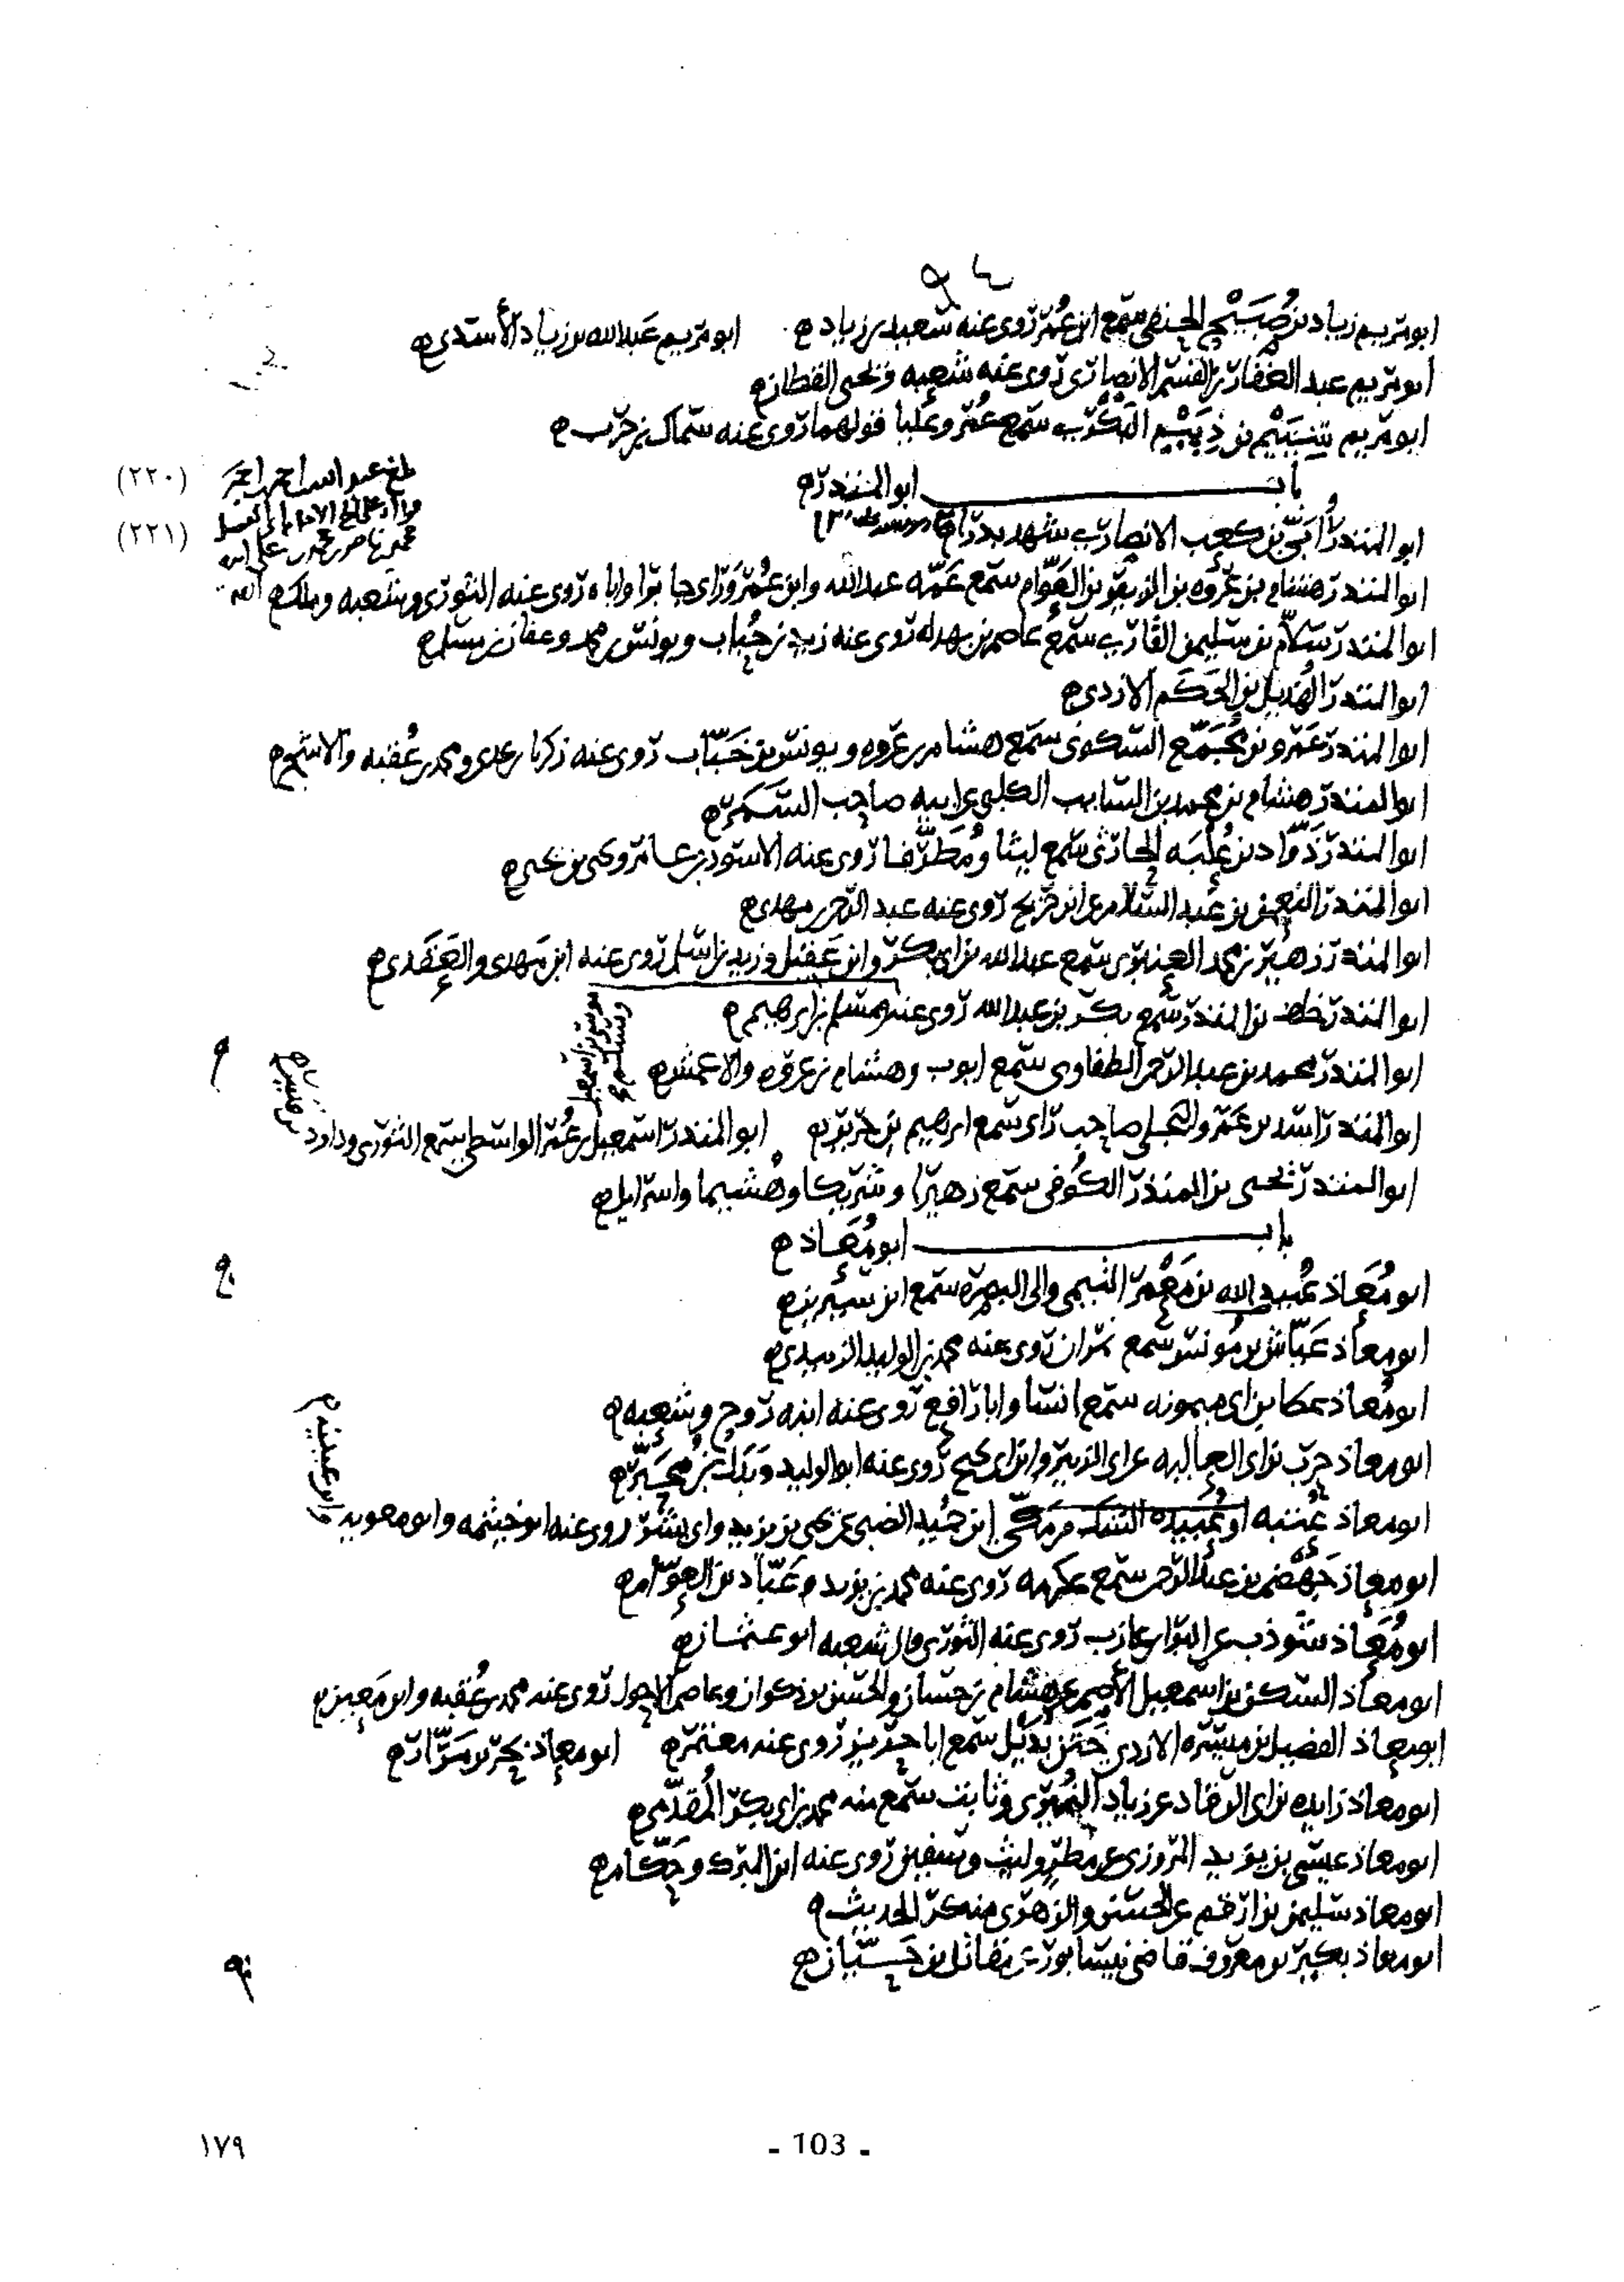 ابو مريم زياد بن صُبَيْح الحنفي سمع ابن عُمر روى عنه سعيد بن زياد ابو مريم عَبد الله بن زياد الأسدي
ابو مريم عبد الغفار بن القسم الانصاري روى عنه شعبه ويحيى القطان
ابو مريم بن ذيَيْم سمع عُمر وعليا قولهما روى عنه سماك بن حرب
باب ابو المنذر
(٢٢٠)
ابو المنذر أُبيّ بن كعب الانصاري شهد بدرا
(٢٢١)
ابو المنذر هشام بن عُروه بن الزبير بن العوّام سمع عَمّه عبد الله وابن عُمر وَراى جابرا واباه روى عنه الثوري وشعبه وملك
ابو المنذر سلاّم بن سليمن القاري سمع عاصم بن بهدله روى عنه زيد بن حُباب ويونس بن محمد وعفان بن مسلم
ابو المنذر الهُذيل بن الحَكَم الازدي
ابو المنذر عَمرو بن مُجَمِّع السكوني سمع هشام بن عروه ويونس بن خَبّاب روى عنه زكريا بن عدي ومحمد بن عُقبه والاشج
ابو المنذر هشام بن محمد بن السايب الكلبي عن ابيه صاحب السَمَر
ابو المنذر ذَوّاد بن عُلْبَه الحارثي سمع ليثا ومُطَرِّفا روى عنه الاسود بن عامر ويحيى بن يحيى
ابو المنذر النعمن بن عَبد السلام عن ابن جريج روى عنه عبد الرحمن بن مهدي
ابو المنذر زهير بن محمد العنبري سمع عبد الله بن ابي بكر وابن عَقيل وزيد بن اسلم روى عنه ابن مَهدي والعَقَدي
ابو المنذر بن المنذر سمع بكر بن عبد الله روى عنه مسلم بن ابرهيم
موسى بن اسمعيل ومسلم
ابو المنذر محمد بن عبد الرحمن الطفاوي سمع ايوب وهشام بن عروه والاعمش
ابو المنذر اسد بن عَمرو البجلي صاحب راي سمع ابرهيم بن جرير ابو المنذر اسمعيل بن عُمر الواسطي سمع الثوري وداود بن قيس
ابو المنذر يحيى بن المنذر الكُوفي سمع زهيرا وشريكا وهُشيما واسرايل
باب ابو مُعَاذ
ابو مُعَاذ عُبيد الله بن مَعْمَر التيمي والي البصره سمع ابن سيرين
ابو معاذ عَيّاش بن مُونس سمع نمران روى عنه محمد بن الوليد الزبيدي
ابو مُعاذ عطا بن ابي ميمونه سمع انسا وابا رافع روى عنه ابنه روح وشعبه
ابو معاذ حرب بن ابي العاليه عن ابي الزبير وابن ابي نجيح روى عنه ابو الوليد وبَدَل بن مُحَبَّر
ابو معاذ عُتبه ابن حُميد الضبي عن يحيى بن يزيد روى عنه ابو خيثمه وابو معويه
وابن عيينه
ابو معاذ جَهْضم بن عبد الرحمن سمع عكرمه روى عنه محمد بن يزيد وعَبّاد بن العوّام
ابو مُعَاذ شوذب عن البرا بن عازب روى عنه الثوري وقال شعبه ابو عثمان
ابو معاذ السكن بن اسمعيل الأصم عن هشام بن حسان والحسن بن ذكوان وعاصم الاحول روى عنه محمد بن عُقبه وابن مَعين
ابو معاذ الفضيل بن ميسره الازدي خَتَن بُدَيل سمع ابا حريز روى عنه معتمر ابو معاذ بحر بن مَرّار
ابو معاذ زايده بن ابي الرقاد عن زياد النُميري وثابت سمع منه محمد بن ابي بكر المُقدّمي
ابو معاذ عيسى بن يزيد المروزي عن مطر وليث وسفين روى عنه ابن المبرك وحَكّام
ابو معاذ سليمن بن ارقم عن الحسن والزهري منكر الحديث
ابو معاذ بكير بن معروف قاضي نيسابور عن مقاتل بن حَيّان
١٧٩
- 103 -